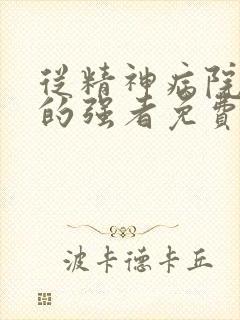 從精神病院
的強者免費
波卡德卡丘